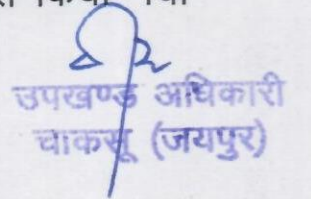 किया गया
उपखण्ड अधिकारी
चाकसू (जयपुर)